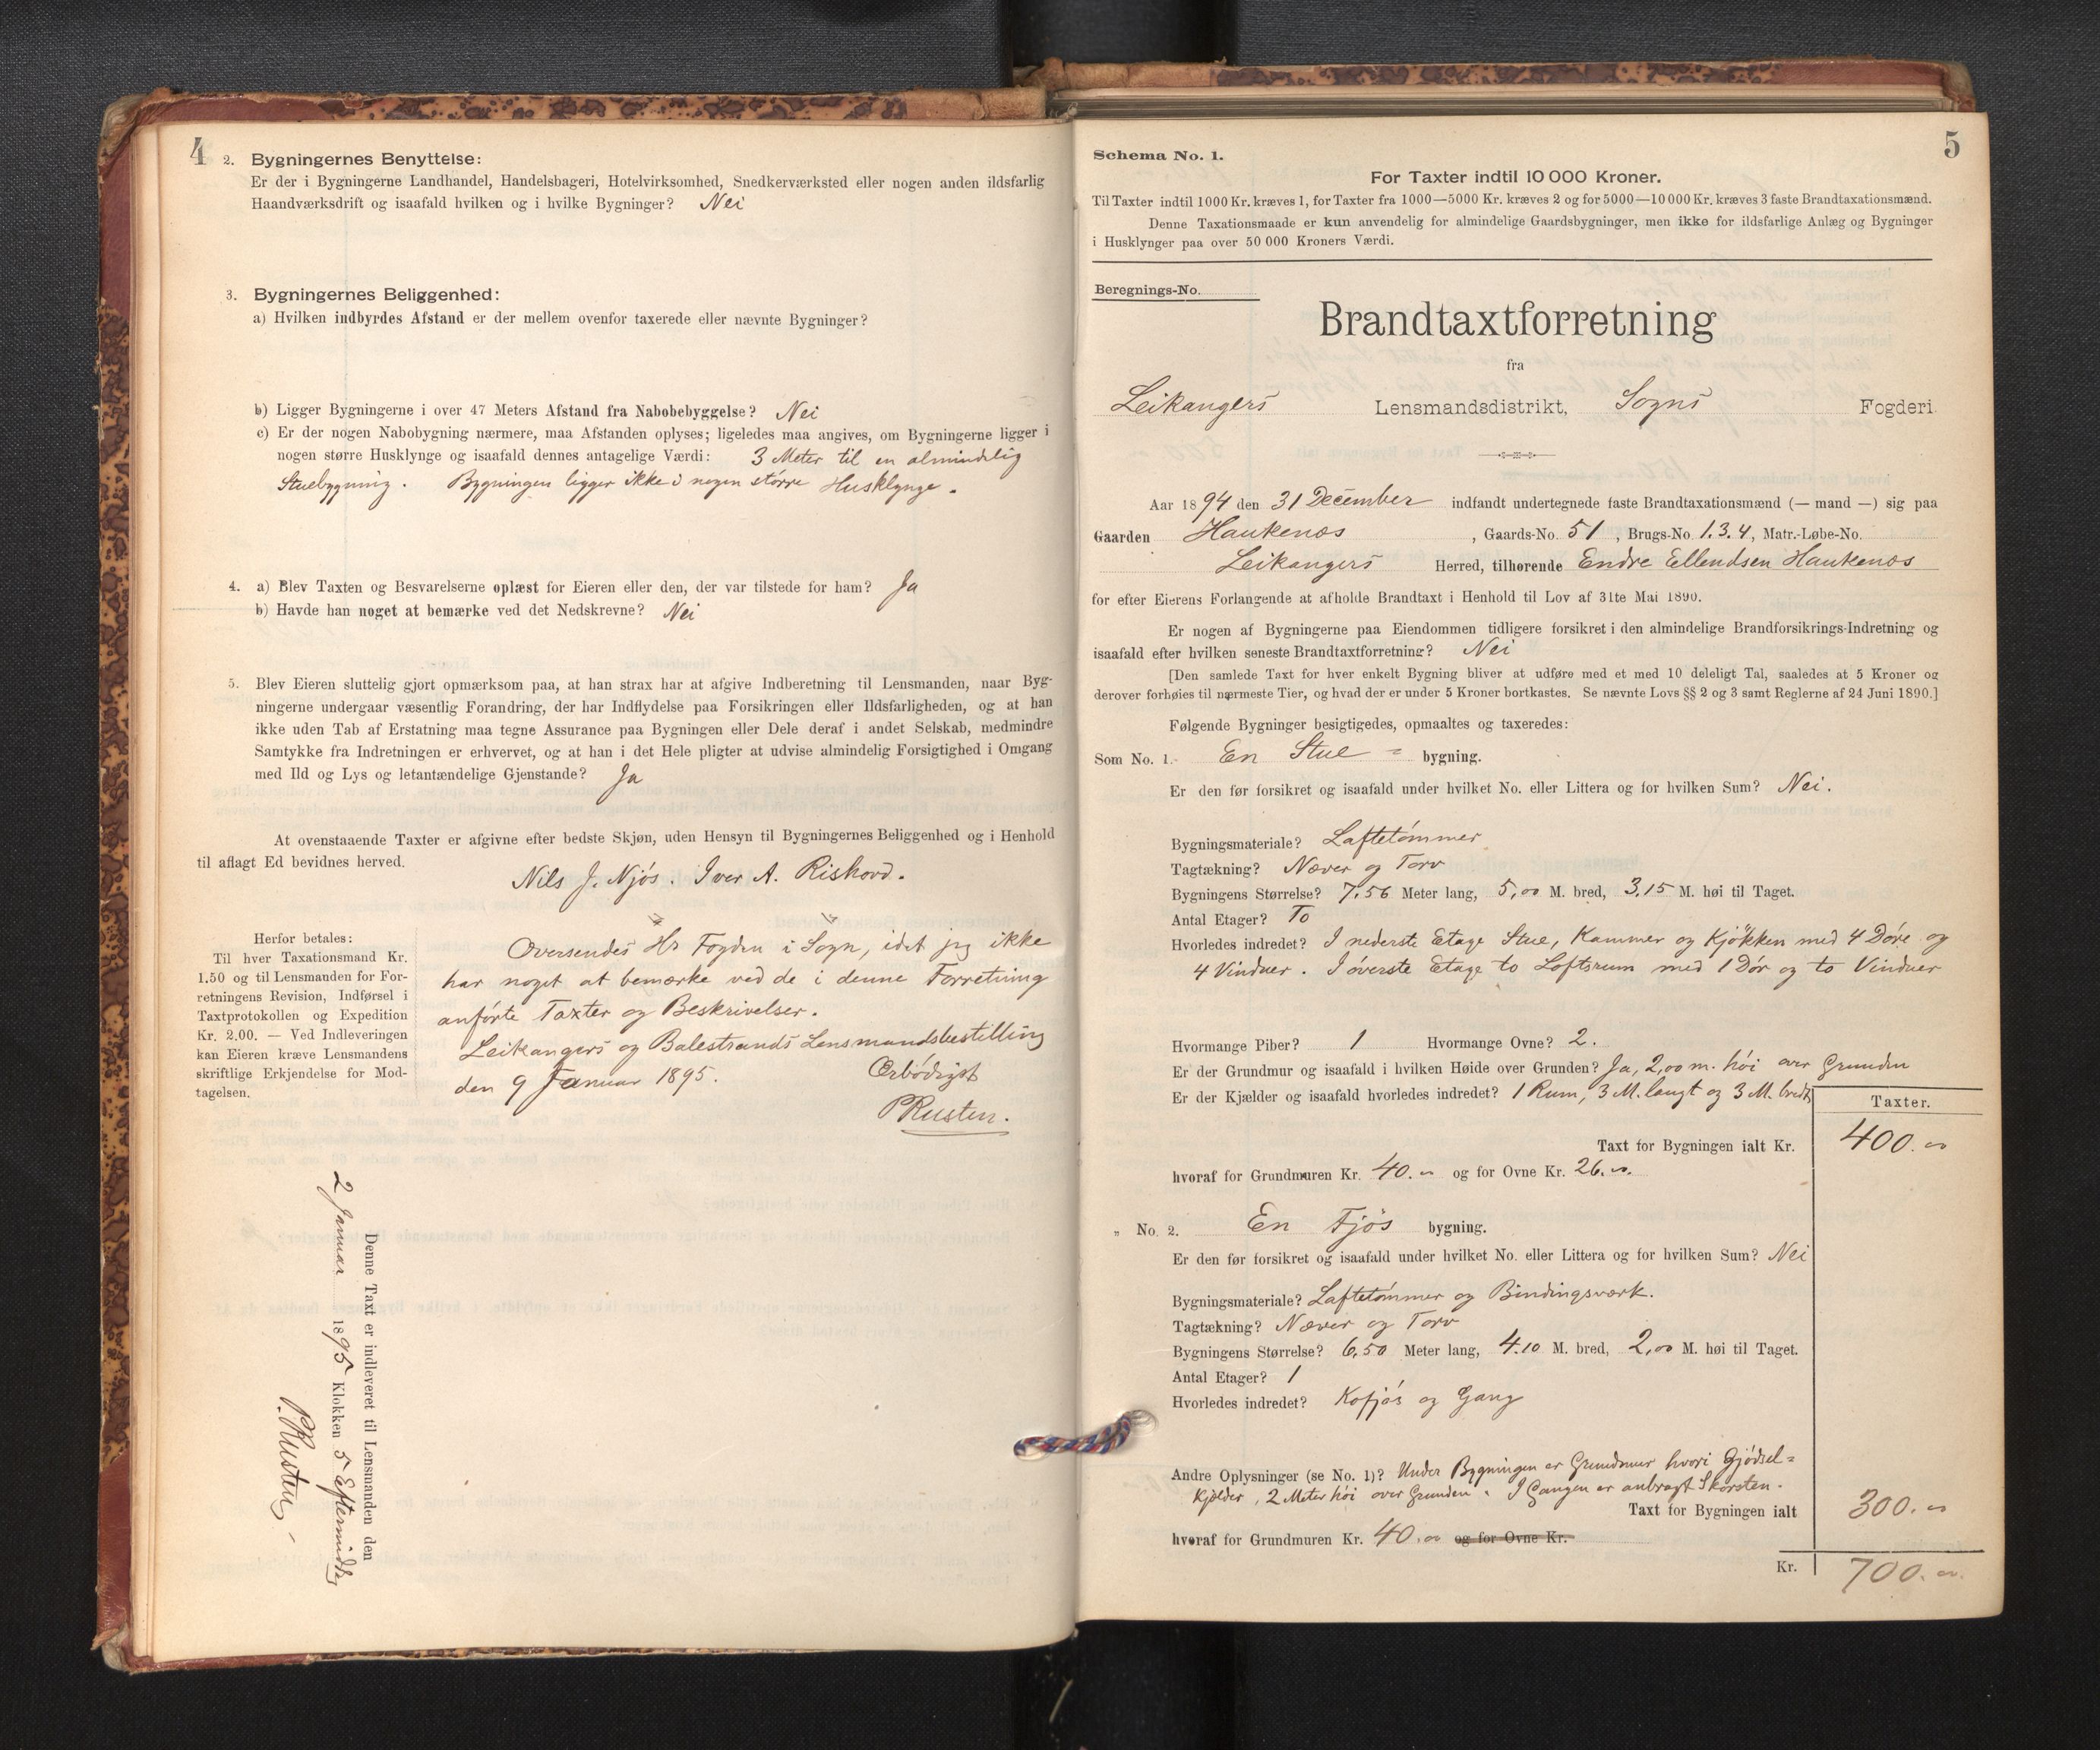 4
2. Bygningernes Benyttelse:
Er der i Bygningerne Landhandel, Handelsbageri, Hotelvirksomhed, Snedkerværksted eller nogen anden ildsfarlig
Haandværksdrift og isaafald hvilken og i hvilke Bygninger? Nei
3. Bygningernes Beliggenhed:
a) Hvilken indbyrdes Afstand er der mellem ovenfor taxerede eller nævnte Bygninger?
b) Ligger Bygningerne i over 47 Meters Afstand fra Nabobebyggelse? Nei
c) Er der nogen Nabobygning nærmere, maa Afstanden oplyses; ligeledes maa angives, om Bygningerne ligger i
nogen større Husklynge og isaafald dennes antagelige Værdi: 3 Meter til en almindelig
Stuebygning. Bygningen ligger ikke i nogen større Husklynge.
4. a) Blev Taxten og Besvarelserne oplæst for Eieren eller den, der var tilstede for ham? Ja
b) Havde han noget at bemærke ved det Nedskrevne? Nei
5. Blev Eieren sluttelig gjort opmærksom paa, at han strax har at afgive Indberetning til Lensmanden, naar Byg-
ningerne undergaar væsentlig Forandring, der har Indflydelse paa Forsikringen eller Ildsfarligheden, og at han
ikke uden Tab af Erstatning maa tegne Assurance paa Bygningen eller Dele deraf i andet Selskab, medmindre
Samtykke fra Indretningen er erhvervet, og at han i det Hele pligter at udvise almindelig Forsigtighed i Omgang
med Ild og Lys og letantændelige Gjenstande? Ja
At ovenstaaende Taxter er afgivne efter bedste Skjøn, uden Hensyn til Bygningernes Beliggenhed og i Henhold
til aflagt Ed bevidnes herved.
Nils J. Njøs. Iver A. Riskovd.
Herfor betales:
Til hver Taxationsmand Kr.
1.50 og til Lensmanden for For-
retningens Revision, Indførsel i
Taxtprotokollen og Expedition
Kr. 2.00. — Ved Indleveringen
kan Eieren kræve Lensmandens
skriftlige Erkjendelse for Mod-
tagelsen.
Oversendes Hr Fogden i Sogn, idet jeg ikke
har noget at bemærke ved de i denne Forretning
anførte Taxter og Beskrivelser.
Leikangers og Balestrands Lensmandsbestilling
den 9 Januar 1895.
Ærbødigst
P Rusten.
Denne Taxt er indleveret til Lensmanden den
2 Januar 1895 Klokken 5 Eftermiddag
P. Rusten
5
Schema No. 1.
For Taxter indtil 10 000 Kroner.
Til Taxter indtil 1000 Kr. kræves 1, for Taxter fra 1000—5000 Kr. kræves 2 og for 5000—10 000 Kr. kræves 3 faste Brandtaxationsmænd.
Denne Taxationsmaade er kun anvendelig for almindelige Gaardsbygninger, men ikke for ildsfarlige Anlæg og Bygninger
i Husklynger paa over 50 000 Kroners Værdi.
Beregnings-No.
Brandtaxtforretning
fra
Leikangers Lensmandsdistrikt, Sogns Fogderi
Aar 1894 den 31 December indfandt undertegnede faste Brandtaxationsmænd (— mand —) sig paa
Gaarden Haukenæs, Gaards-No. 51, Brugs-No. 1.3.4, Matr.-Løbe-No.
Leikangers Herred, tilhørende Endre Ellendsen Haukenæs
for efter Eierens Forlangende at afholde Brandtaxt i Henhold til Lov af 31te Mai 1890.
Er nogen af Bygningerne paa Eiendommen tidligere forsikret i den almindelige Brandforsikrings-Indretning og
isaafald efter hvilken seneste Brandtaxtforretning? Nei
[Den samlede Taxt for hver enkelt Bygning bliver at udføre med et med 10 deleligt Tal, saaledes at 5 Kroner og
derover forhøies til nærmeste Tier, og hvad der er under 5 Kroner bortkastes. Se nævnte Lovs §§ 2 og 3 samt Reglerne af 24 Juni 1890.]
Følgende Bygninger besigtigedes, opmaaltes og taxeredes:
Som No. 1. En Stue = bygning.
Er den før forsikret og isaafald under hvilket No. eller Littera og for hvilken Sum? Nei.
Bygningsmateriale? Laftetømmer
Tagtækning? Næver og Torv
Bygningens Størrelse? 7,56 Meter lang, 5,00 M. bred, 3,15 M. høi til Taget.
Antal Etager? To
Hvorledes indredet? I nederste Etage Stue, Kammer og Kjøkken med 4 Døre og
4 Vinduer. I øverste Etage to Loftsrum med 1 Dør og to Vinduer
Hvormange Piber? 1 Hvormange Ovne? 2.
Er der Grundmur og isaafald i hvilken Høide over Grunden? Ja, 2,00 m. høi over Grunden
Er der Kjælder og isaafald hvorledes indredet? 1 Rum, 3 M. langt og 3 M. bredt
Taxter.
Taxt for Bygningen ialt Kr. 400.00
hvoraf for Grundmuren Kr. 40.00 og for Ovne Kr. 26.00.
„ No. 2. En Fjøs bygning.
Er den før forsikret og isaafald under hvilket No. eller Littera og for hvilken Sum? Nei
Bygningsmateriale? Laftetømmer og Bindingsværk.
Tagtækning? Næver og Torv
Bygningens Størrelse? 6,50 Meter lang, 4.10 M. bred, 2,00 M. høi til Taget.
Antal Etager? 1
Hvorledes indredet? Kofjøs og Gang
Andre Oplysninger (se No. 1)? Under Bygningen er Grundmur hvori Gjødsel=
kjelder, 2 Meter høi over Grunden. I Gangen er anbragt Skorsten.
Taxt for Bygningen ialt 300.00
hvoraf for Grundmuren Kr. 40.00 og for Ovne Kr.
Kr. 700.00